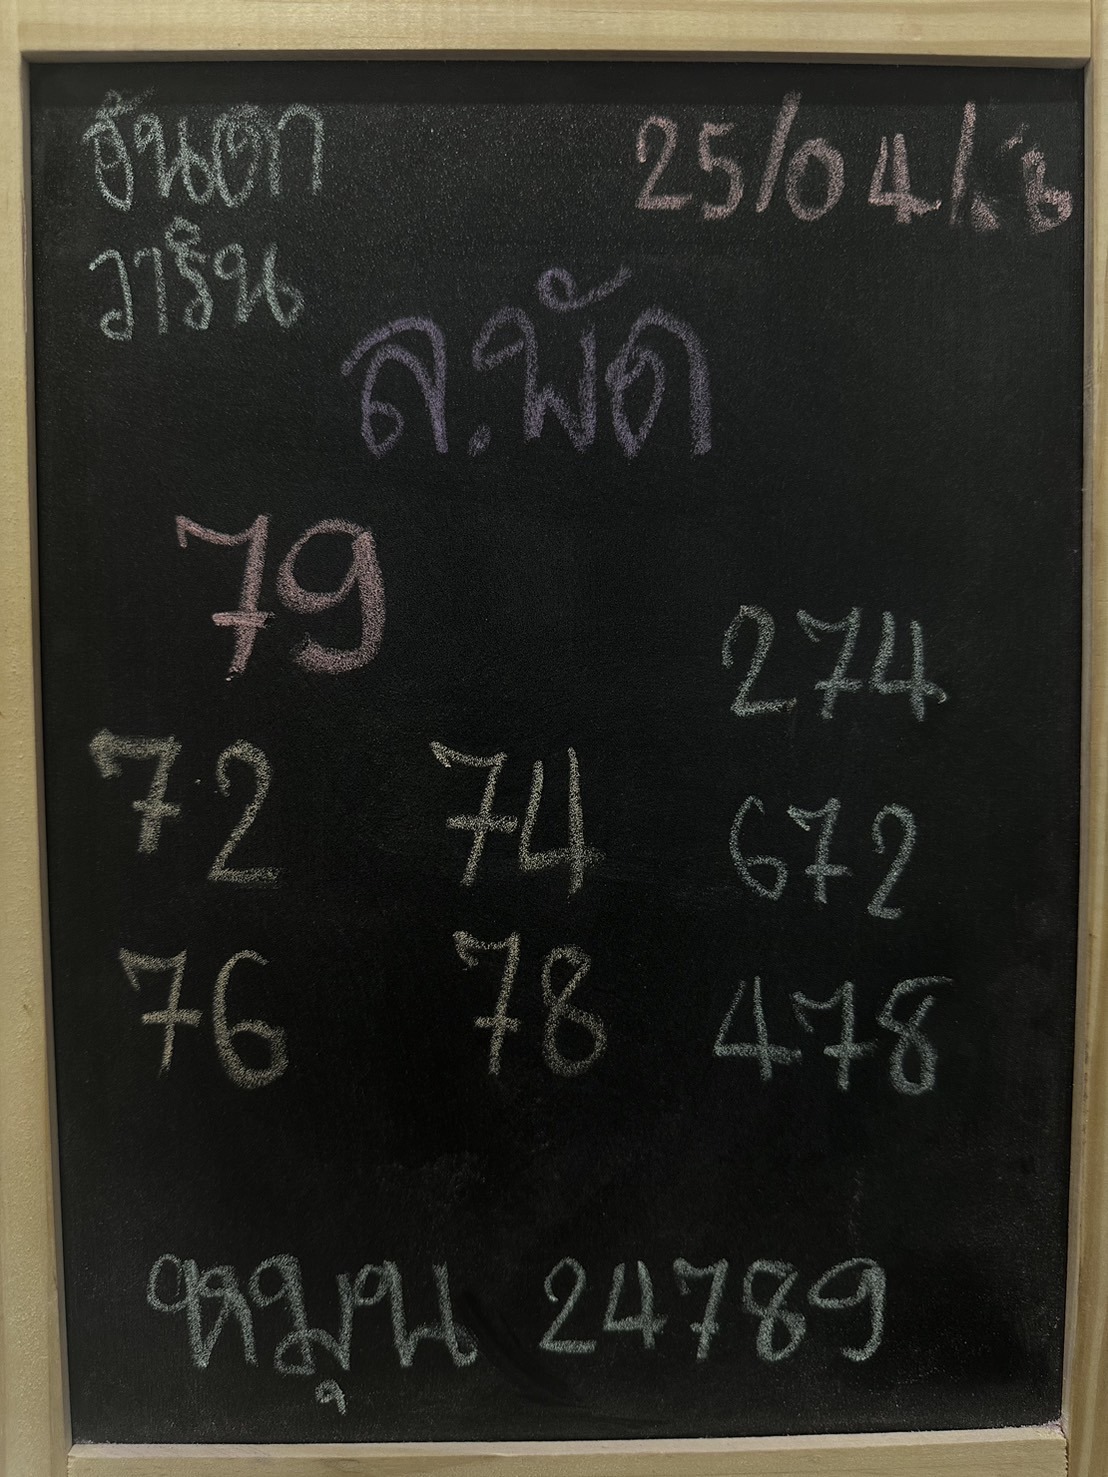 วารินทร์
25/04/
ล.พัด
79
274
72 74
672
76 78
478
หมุน 24789